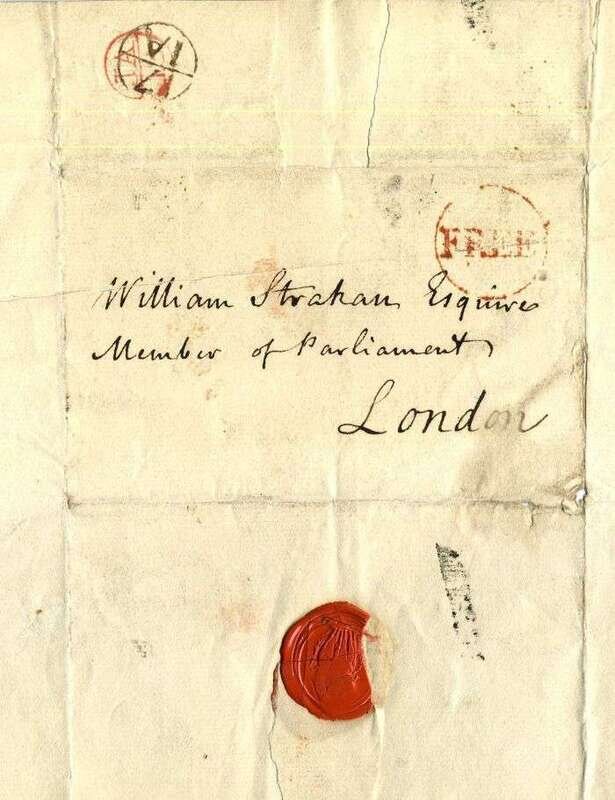 William Strahan Esquire
Member of Parliament
London
FREE